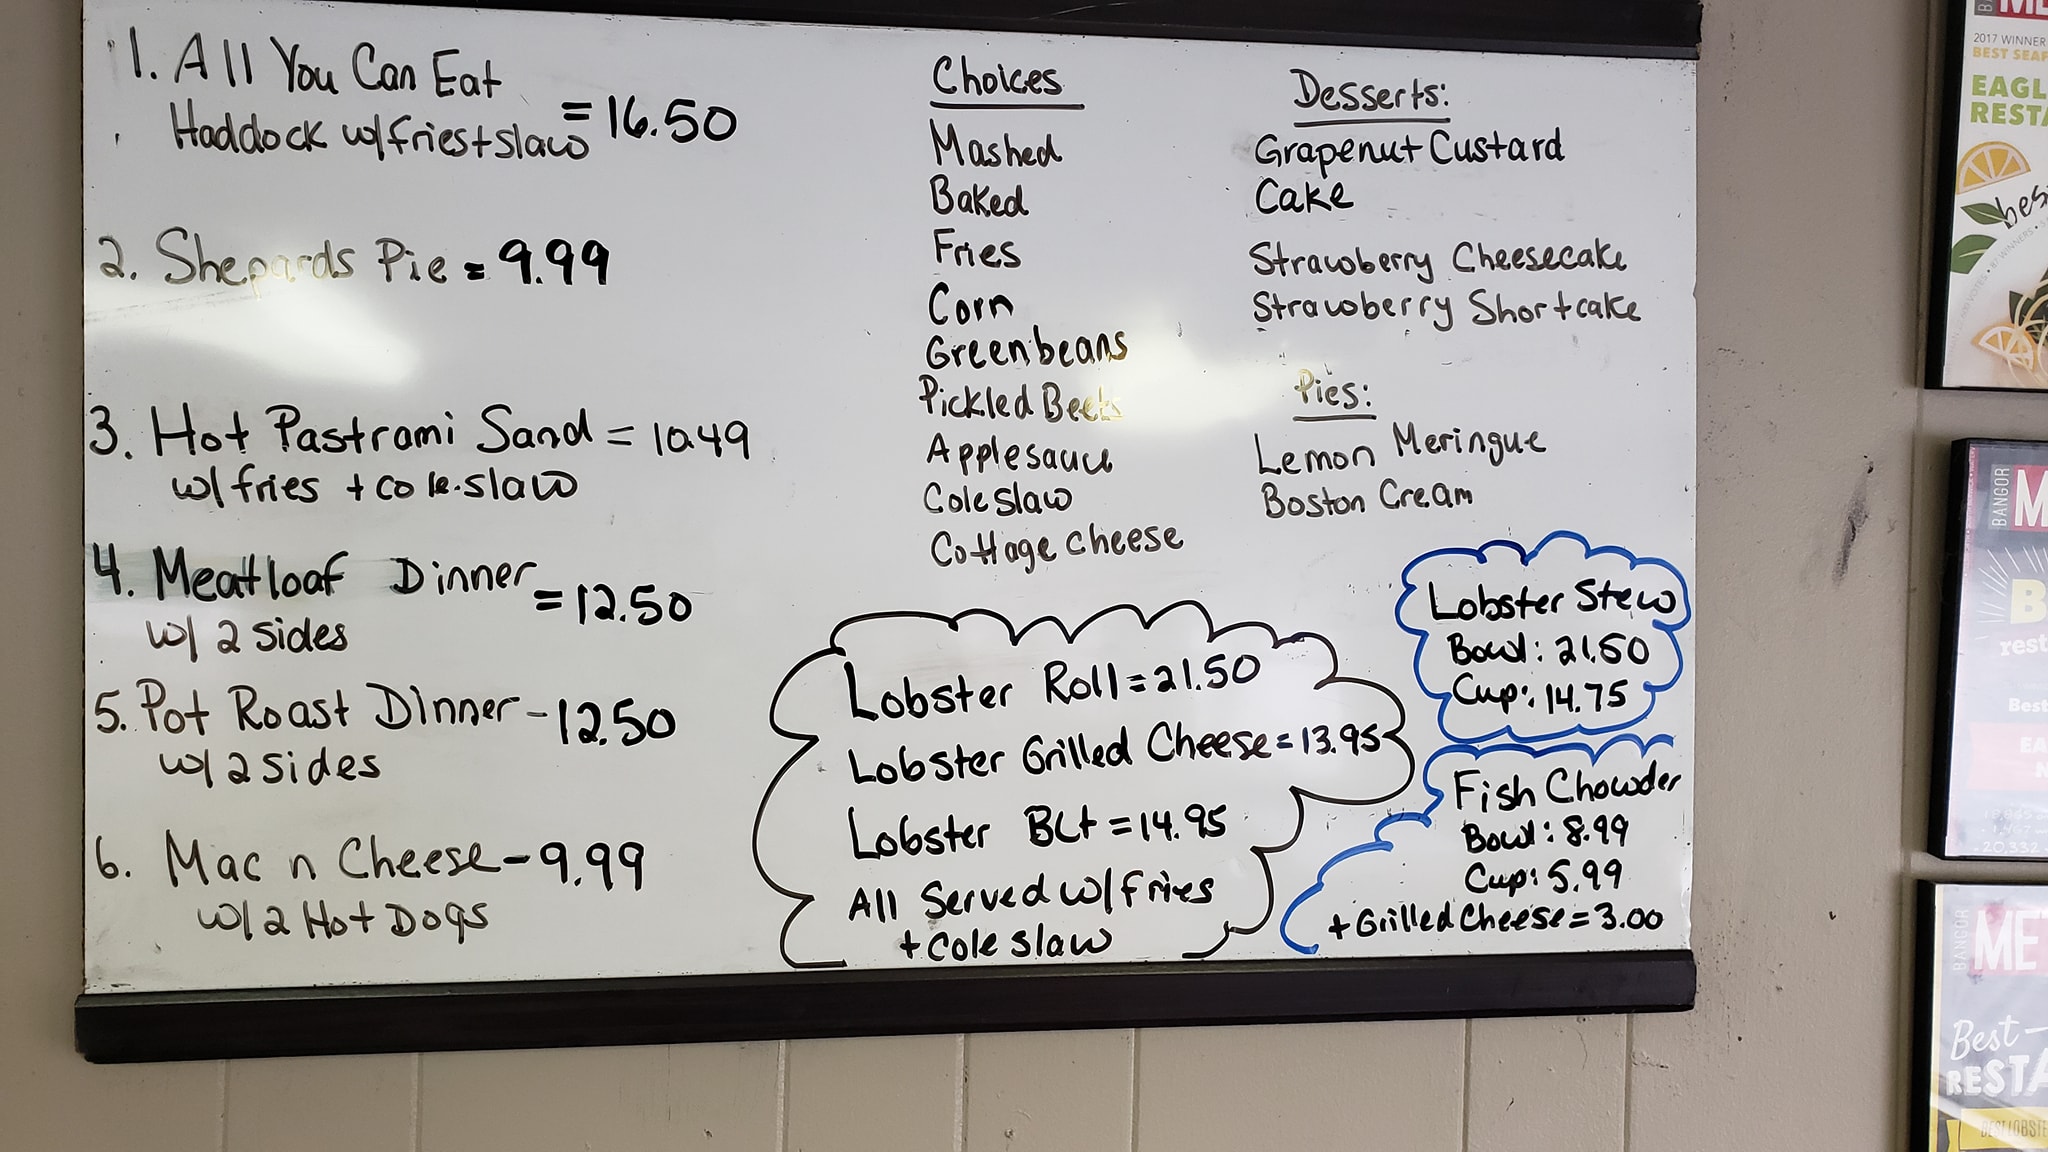 1. All You Can Eat
Haddock w/fries+slaw = 16.50
2. Shepards Pie = 9.99
3. Hot Pastrami Sand = 10.49
w/fries + cole.slaw
4. Meatloaf Dinner = 12.50
w/ 2 sides
5. Pot Roast Dinner - 12.50
w/ 2 sides
6. Mac n Cheese - 9.99
w/ 2 Hot Dogs
Choices
Mashed
Baked
Fries
Corn
Greenbeans
Pickled Beets
Applesauce
Coleslaw
Cottage cheese
Desserts:
Grapenut Custard
Cake
Strawberry Cheesecake
Strawberry Shortcake
Pies:
Lemon Meringue
Boston Cream
Lobster Roll = 21.50
Lobster Grilled Cheese = 13.95
Lobster BLt = 14.95
All Served w/fries
+ Cole slaw
Lobster Stew
Bowl: 21.50
Cup: 14.75
Fish Chowder
Bowl: 8.99
Cup: 5.99
+ Grilled Cheese = 3.00
2017 WINNER
BEST
EAGL
REST
best
BANGOR
M
B
rest
Best
EA
20,332
BANGOR
ME
Best
RESTA
BEST LOBSTE